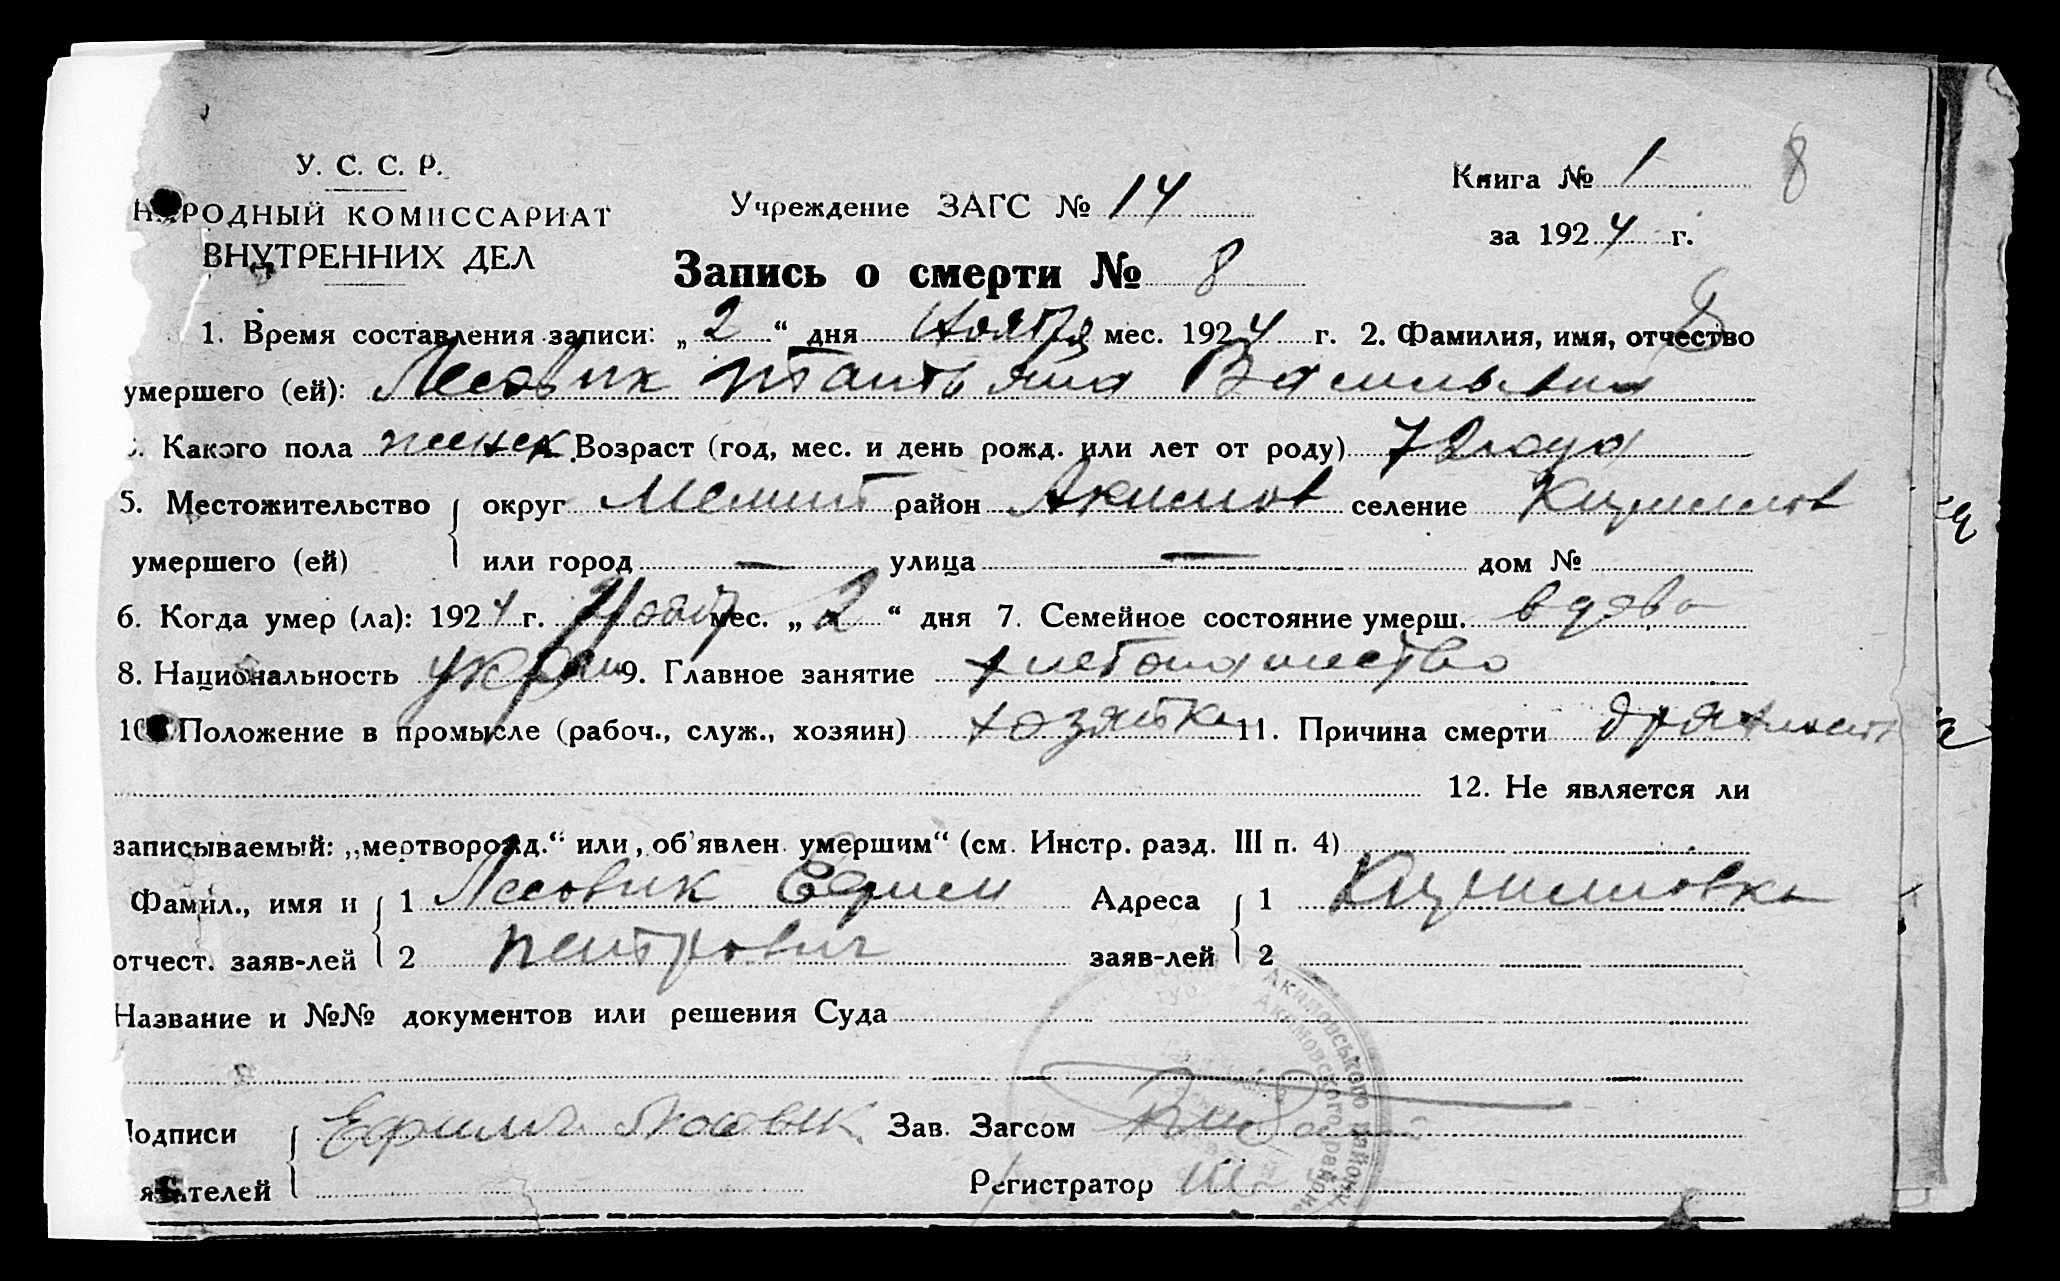 У. С. С. Р.
НАРОДНЫЙ КОМИССАРИАТ
ВНУТРЕННИХ ДЕЛ
Учреждение ЗАГС № 14
Книга № 1
8
за 1924 г.
Запись о смерти № 8
8
1. Время составления записи: „2“ дня Ноября мес. 1924 г. 2. Фамилия, имя, отчество
умершего (ей): Лесовик Татьяна Васильевна
Какого пола женск. Возраст (год, мес. и день рожд. или лет от роду) 72 года
5. Местожительство умершего (ей) округ Мелит район Акимов селение
или город — улица — дом №
6. Когда умер (ла): 1924 г. Нояб мес. „2“ дня 7. Семейное состояние умерш. вдова
8. Национальность украин 9. Главное занятие хлебопашество
10. Положение в промысле (рабоч., служ., хозяин) хозяйка 11. Причина смерти дряхлость
12. Не является ли
записываемый: „мертворожд.“ или „об'явлен умершим“ (см. Инстр. разд. III п. 4)
Фамил., имя и отчест. заяв-лей 1 Лесовик Ефим Адреса заяв-лей 1
2 Петрович 2
Название и №№ документов или решения Суда
Подписи Ефим Лесовик Зав. Загсом
явителей Регистратор
Акимовського району
Акимовского района